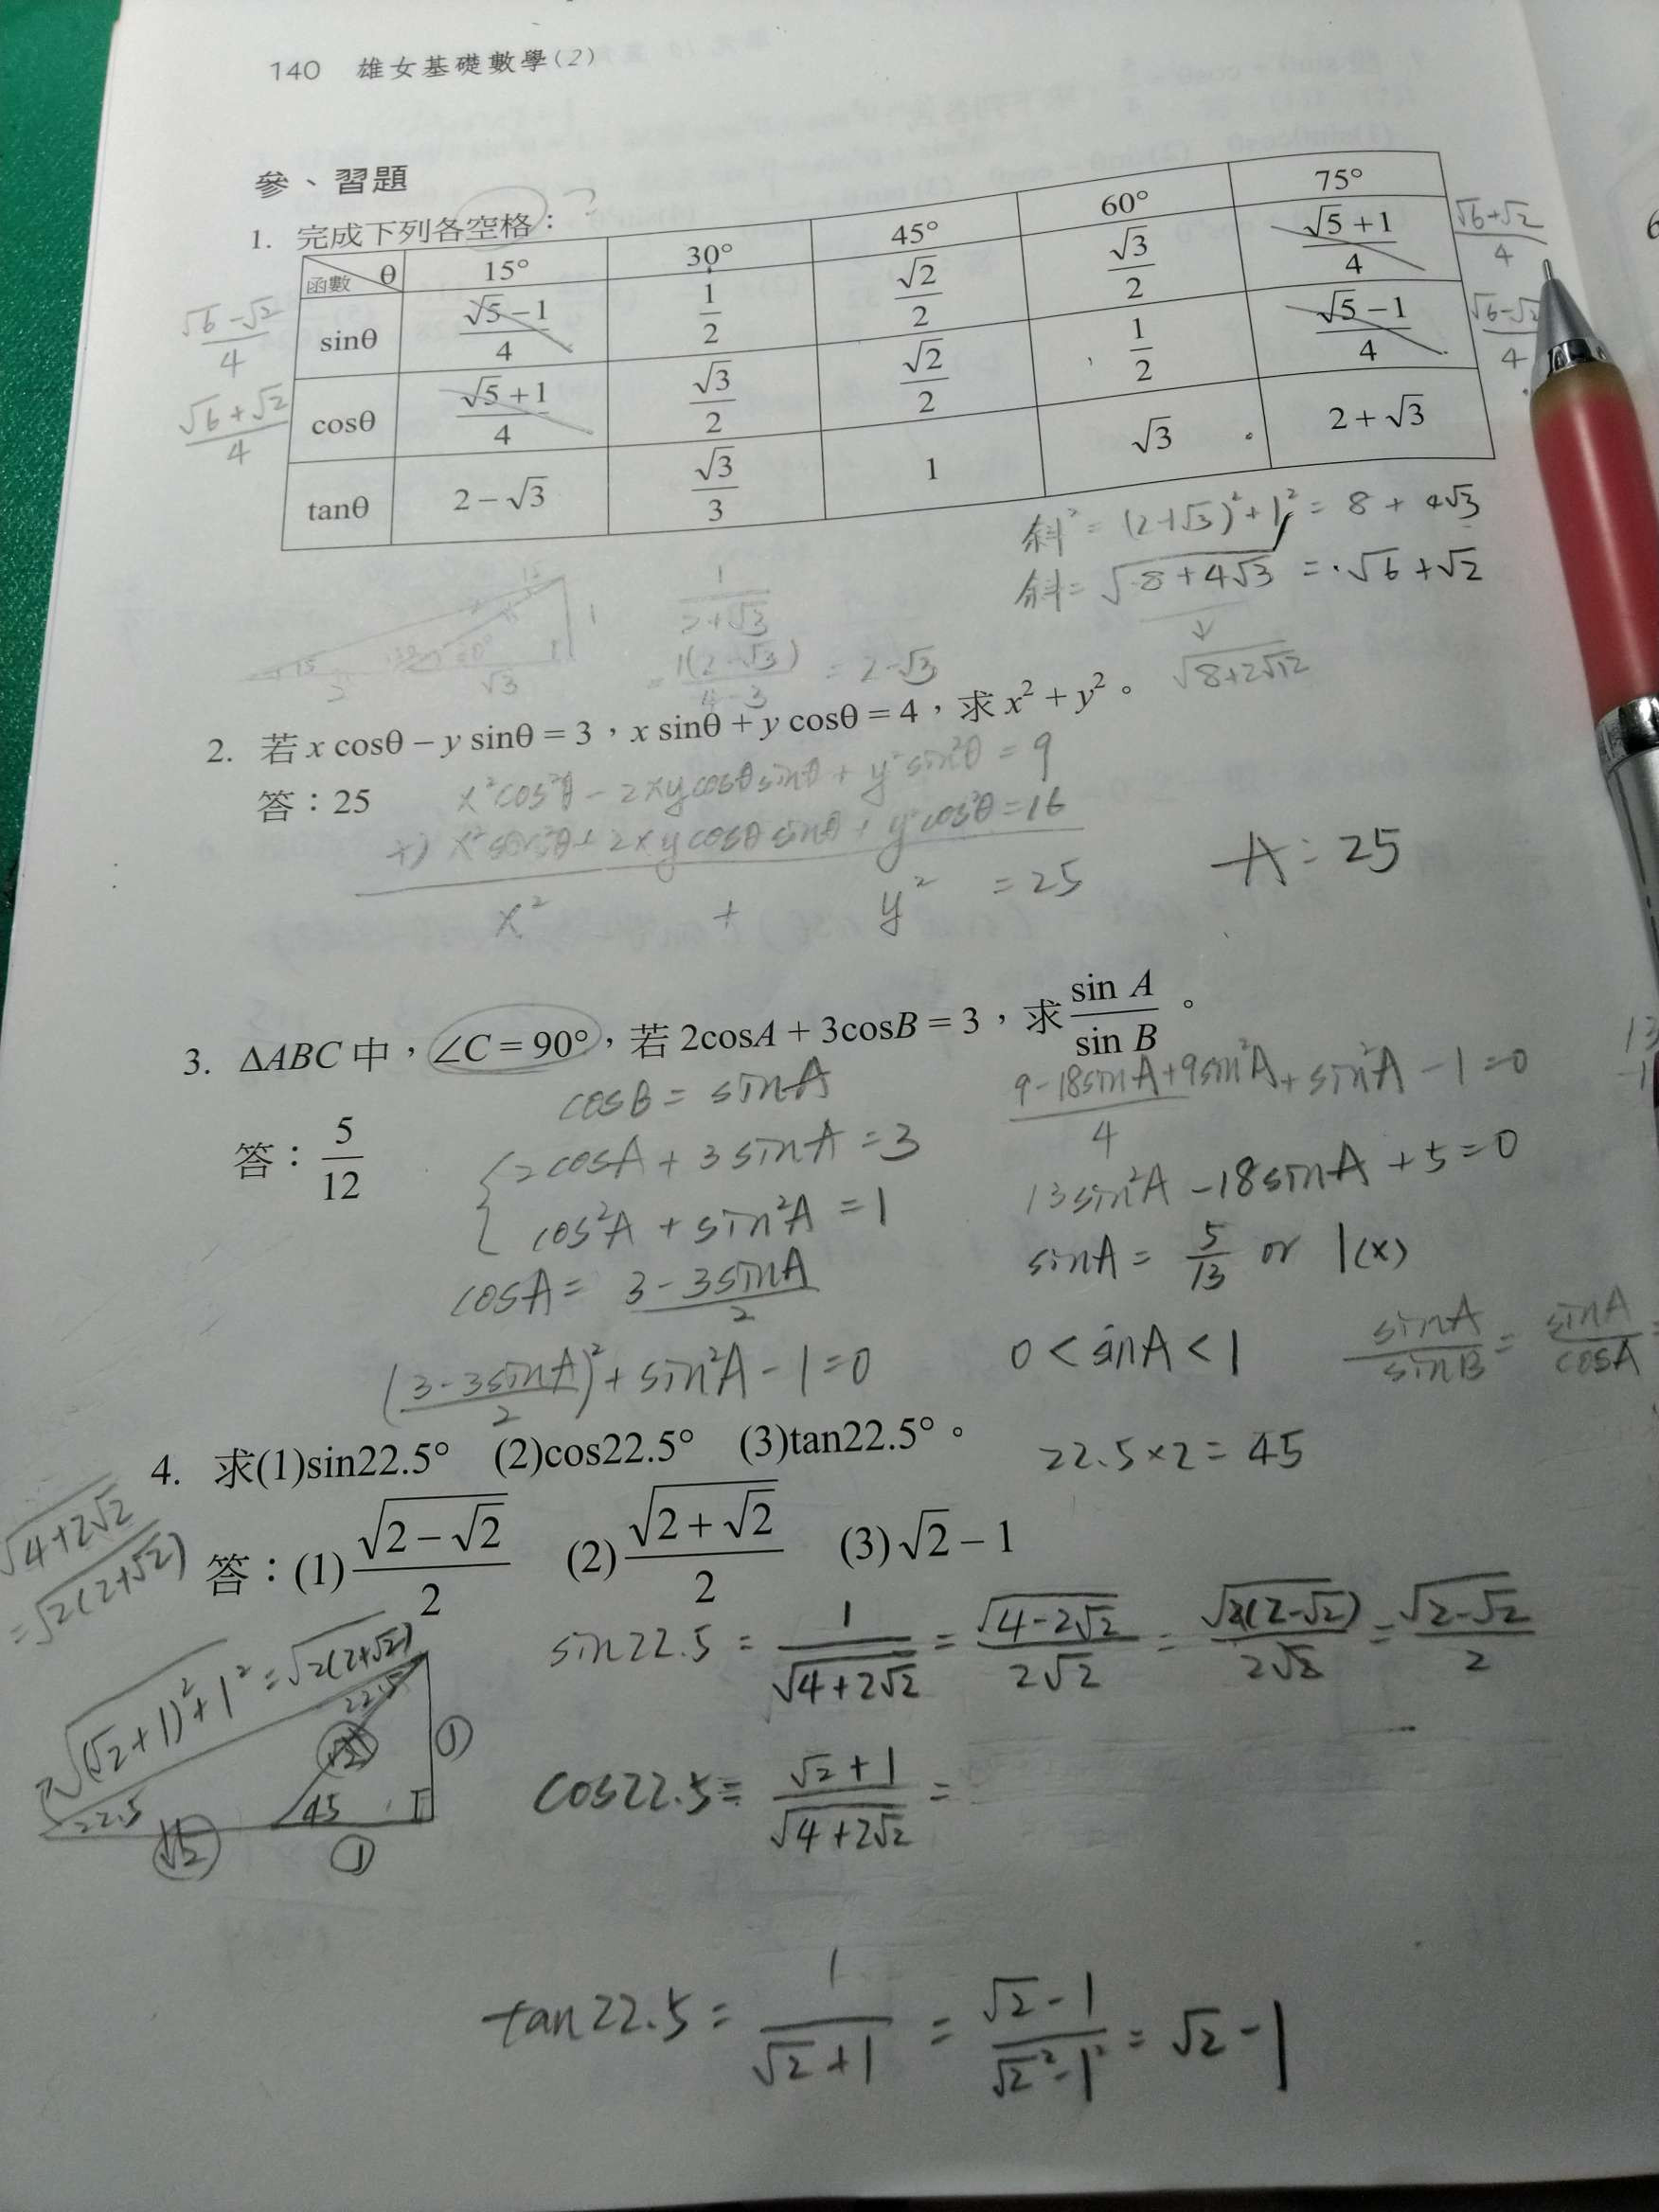 140 雄女基礎數學(2)
參、習題
1. 完成下列各空格： ?
函數 θ 15° 30° 45° 60° 75°
sinθ (√5-1)/4 1/2 √2/2 √3/2 (√5+1)/4
(√6-√2)/4 (√6+√2)/4
cosθ (√5+1)/4 √3/2 √2/2 1/2 (√5-1)/4
(√6+√2)/4 (√6-√2)/4
tanθ 2-√3 √3/3 1 √3 2+√3
斜² = (2+√3)²+1² = 8+4√3
斜 = √(8+4√3) = √6+√2
↓
√(8+2√12)
1/(2+√3)
= 1(2-√3)/(4-3) = 2-√3
15 2 1 15 2 √3
2. 若 x cosθ - y sinθ = 3，x sinθ + y cosθ = 4，求 x² + y²。
答：25
x²cos²θ - 2xycosθsinθ + y²sin²θ = 9
+) x²sin²θ + 2xycosθsinθ + y²cos²θ = 16
x² + y² = 25
A：25
3. ΔABC 中，∠C = 90°，若 2cosA + 3cosB = 3，求 sin A/sin B。
答：5/12
cosB = sinA
2cosA + 3sinA = 3
cos²A + sin²A = 1
cosA = (3-3sinA)/2
((3-3sinA)/2)² + sin²A - 1 = 0
(9-18sinA+9sin²A)/4 + sin²A - 1 = 0
13sin²A - 18sinA + 5 = 0
sinA = 5/13 or 1(x)
0 < sinA < 1
sinA/sinB = sinA/cosA =
4. 求(1)sin22.5° (2)cos22.5° (3)tan22.5°。
22.5×2 = 45
答：(1) √(2-√2)/2 (2) √(2+√2)/2 (3) √2-1
√(4+2√2)
= √(2(2+√2))
√((√2+1)²+1²) = √(2(2+√2))
22.5 √2 ①
22.5 45
√2 ①
sin22.5 = 1/√(4+2√2) = √(4-2√2)/(2√2) = √(2(2-√2))/(2√2) = √(2-√2)/2
cos22.5 = (√2+1)/√(4+2√2) =
tan22.5 = 1/(√2+1) = (√2-1)/(√2²-1²) = √2-1